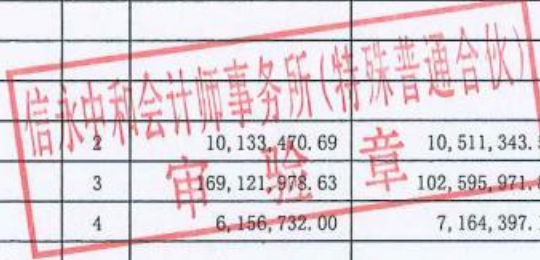 信永中和会计师事务所(特殊普通合伙)
审验章
2 10,133,470.69 10,511,343.5
3 169,121,978.63 102,595,971.8
4 6,156,732.00 7,164,397.1